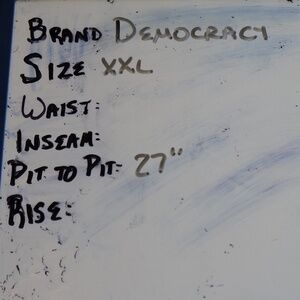 BRAND DEMOCRACY
SIZE XXL
WAIST:
INSEAM:
PIT TO PIT: 27"
RISE: